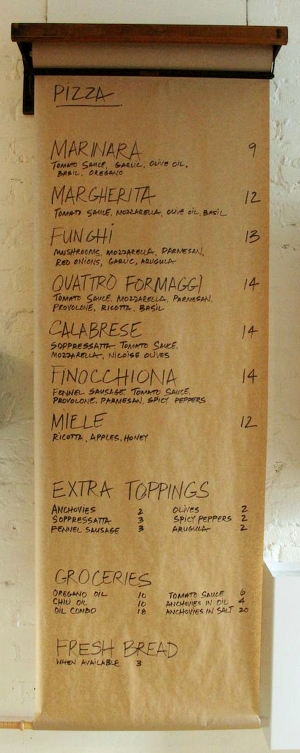 PIZZA
MARINARA 9
TOMATO SAUCE, GARLIC, OLIVE OIL,
BASIL, OREGANO
MARGHERITA 12
TOMATO SAUCE, MOZZARELLA, OLIVE OIL, BASIL
FUNGHI 13
MUSHROOMS, MOZZARELLA, PARMESAN,
RED ONIONS, GARLIC, ARUGULA
QUATTRO FORMAGGI 14
TOMATO SAUCE, MOZZARELLA, PARMESAN,
PROVOLONE, RICOTTA, BASIL
CALABRESE 14
SOPPRESSATTA, TOMATO SAUCE,
MOZZARELLA, NICOISE OLIVES
FINOCCHIONA 14
FENNEL SAUSAGE, TOMATO SAUCE,
PROVOLONE, PARMESAN, SPICY PEPPERS
MIELE 12
RICOTTA, APPLES, HONEY
EXTRA TOPPINGS
ANCHOVIES 2 OLIVES 2
SOPPRESSATTA 3 SPICY PEPPERS 2
FENNEL SAUSAGE 3 ARUGULA 2
GROCERIES
OREGANO OIL 10 TOMATO SAUCE 6
CHILI OIL 10 ANCHOVIES IN OIL 4
OIL COMBO 18 ANCHOVIES IN SALT 20
FRESH BREAD
WHEN AVAILABLE 3